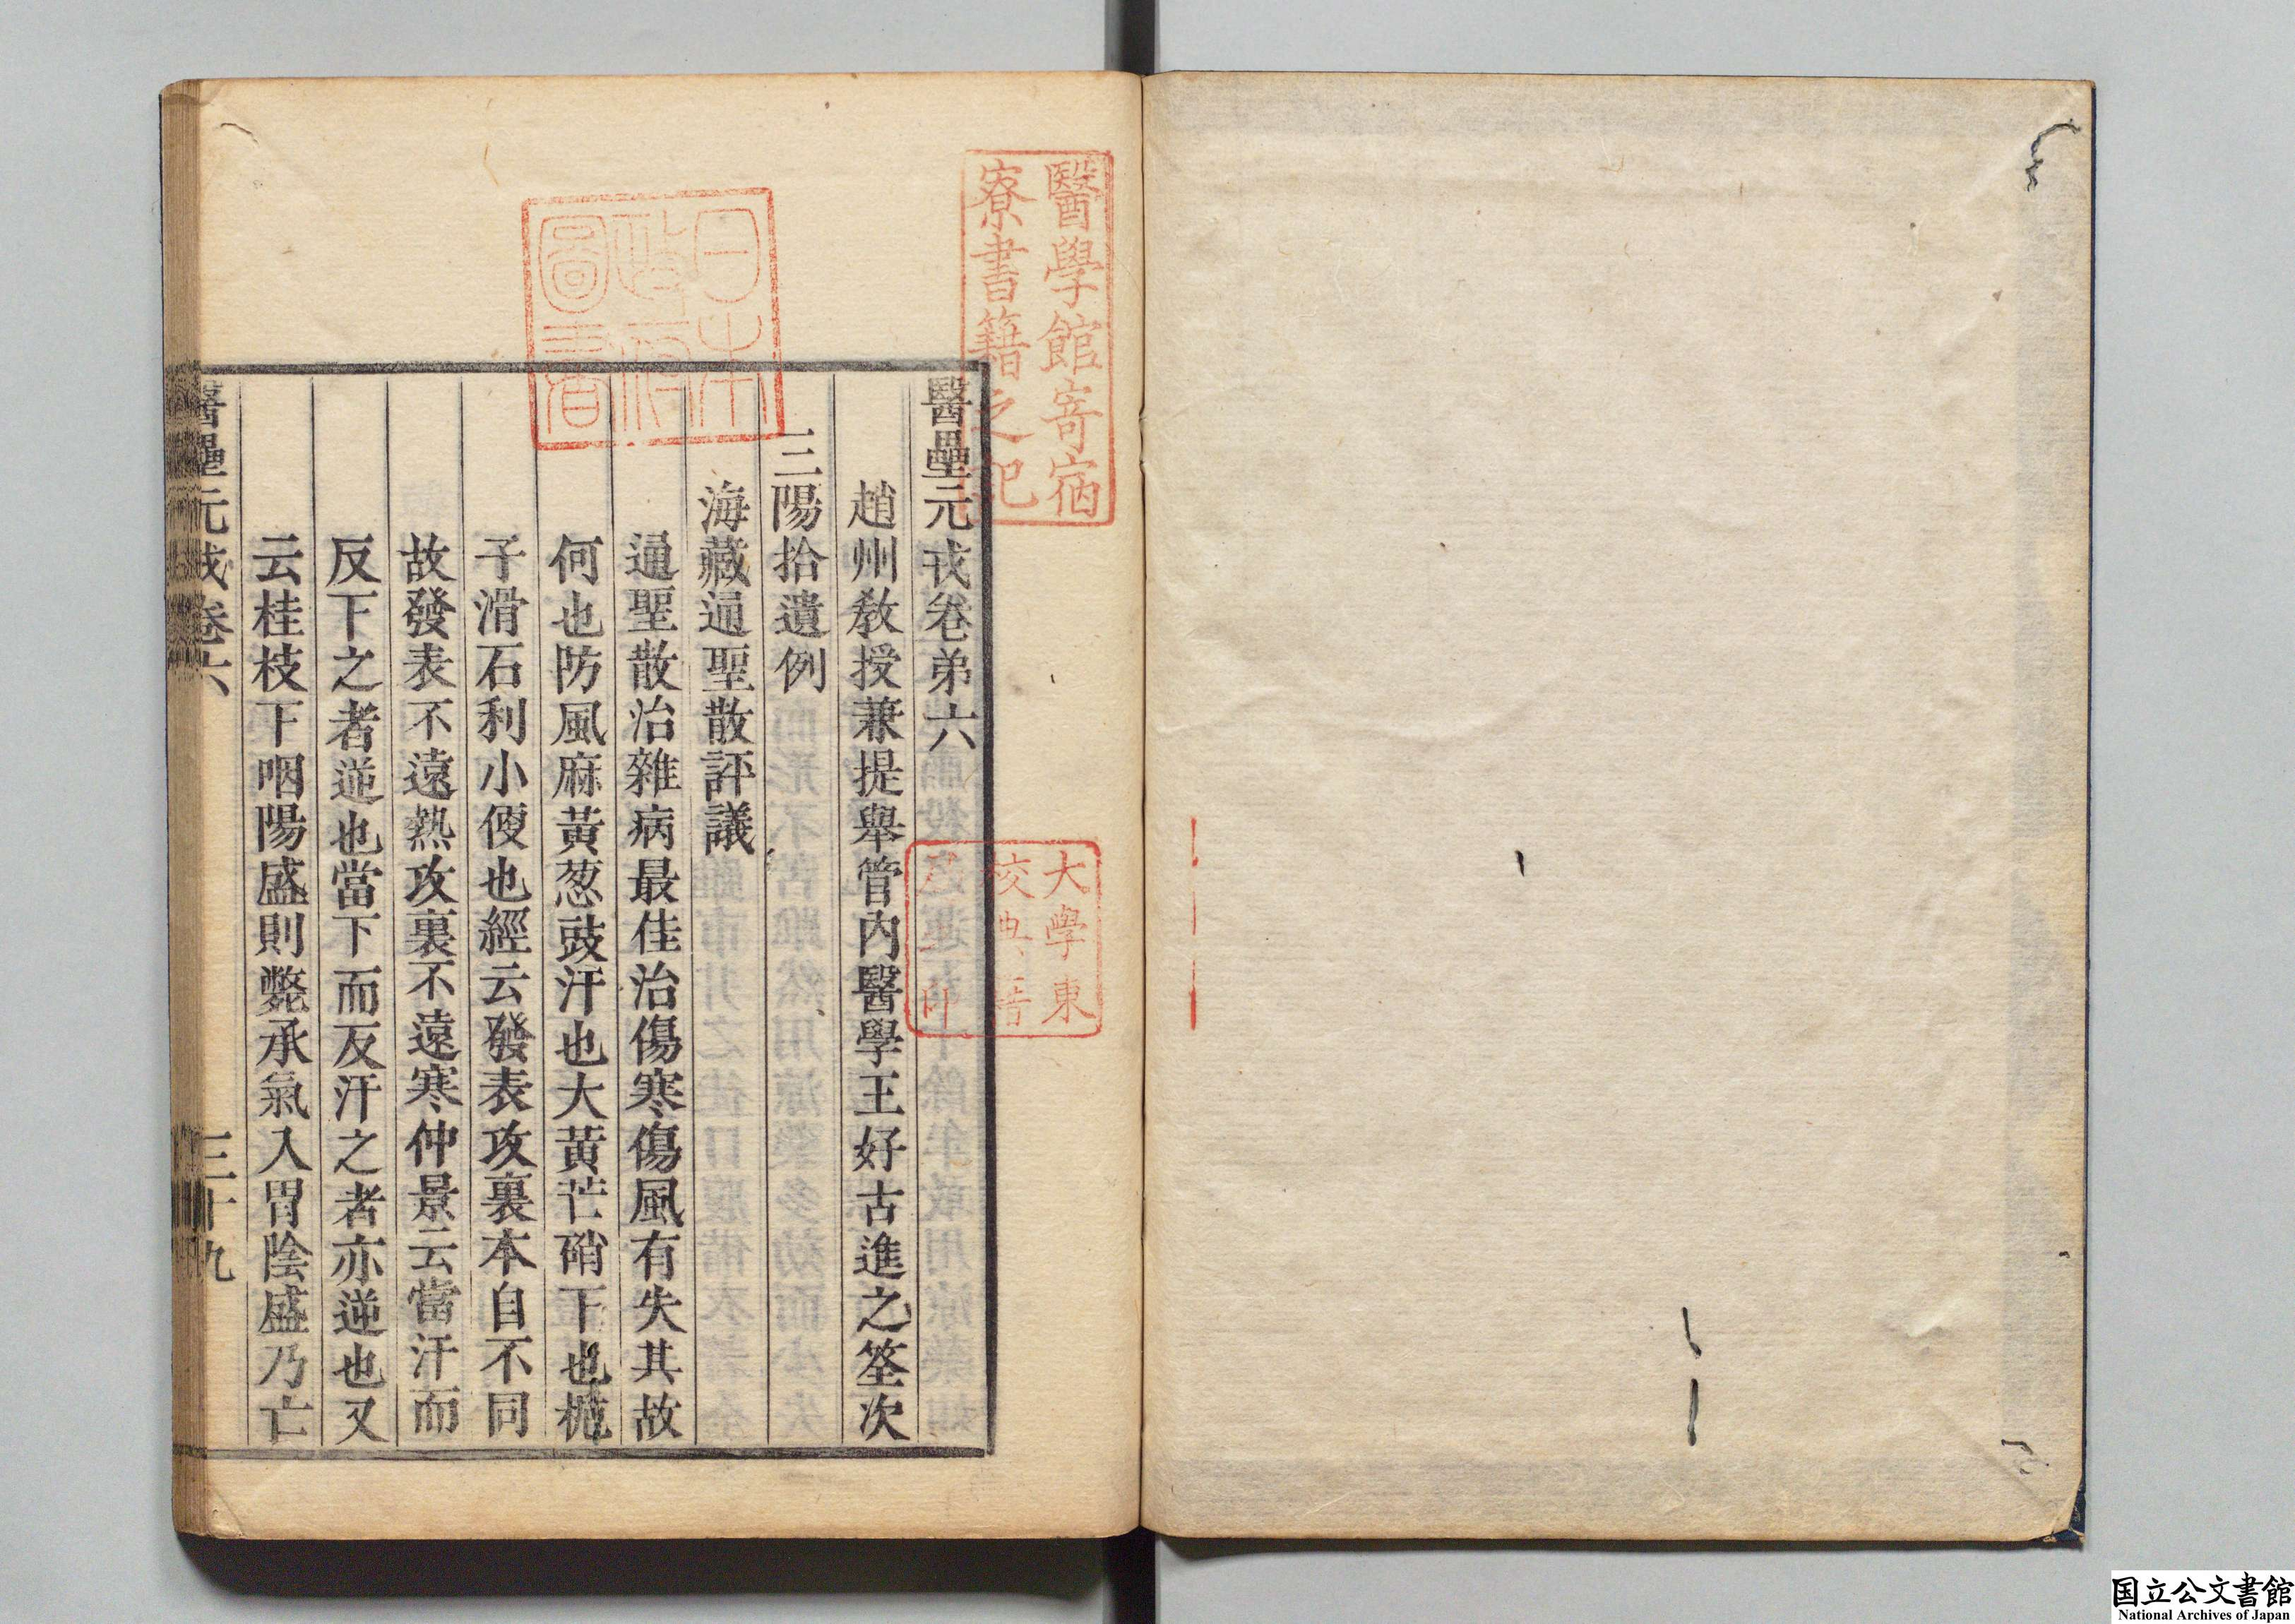 醫學館寄宿
寮書籍之記
日本
政府
圖書
大學東
校典書
醫壘元戎卷弟六
趙州教授兼提舉管內醫學王好古進之筌次
三陽拾遺例
海藏通聖散評議
通聖散治雜病最佳治傷寒傷風有失其故
何也防風麻黃葱豉汗也大黃芒硝下也梔
子滑石利小便也經云發表攻裏本自不同
故發表不遠熱攻裏不遠寒仲景云當汗而
反下之者逆也當下而反汗之者亦逆也又
云桂枝下咽陽盛則斃承氣入胃陰盛乃亡
醫壘元戎卷六
三十九
国立公文書館
National Archives of Japan